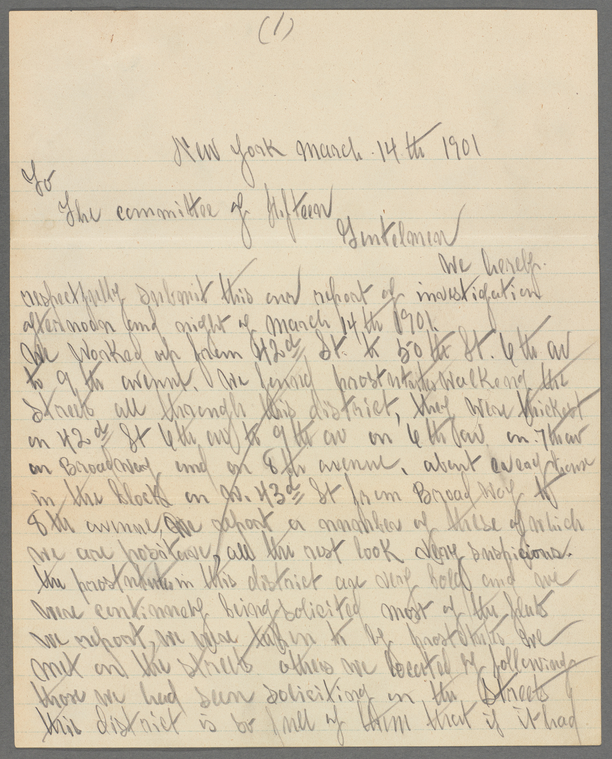 (1)
New York March 14th 1901
To
The committee of Fifteen
Gentelmen
We hereby
respectfully submit this our report of investigation
afternoon and night of March 14th 1901.
We worked up from 42d St. to 50th St. 6th av
to 9th avenue. We found prostitutes walkeng the
Streets all through this district, they were thickest
on 42d St 6th av to 9th av on 6th av on 7th av
on BroadWay and on 8th avenue, about every house
in the block on W. 43d St from BroadWay to
8th avenue, We report a number of these of which
we are positave, all the rest look very suspicious.
the prostitutes in this district are very bold and we
were continuely being solicited most of the flats
we report, we were taken to by prostitutes we
met on the streets others we located by following
those we had seen soliciting on the Streets
this district is so full of them that if it had